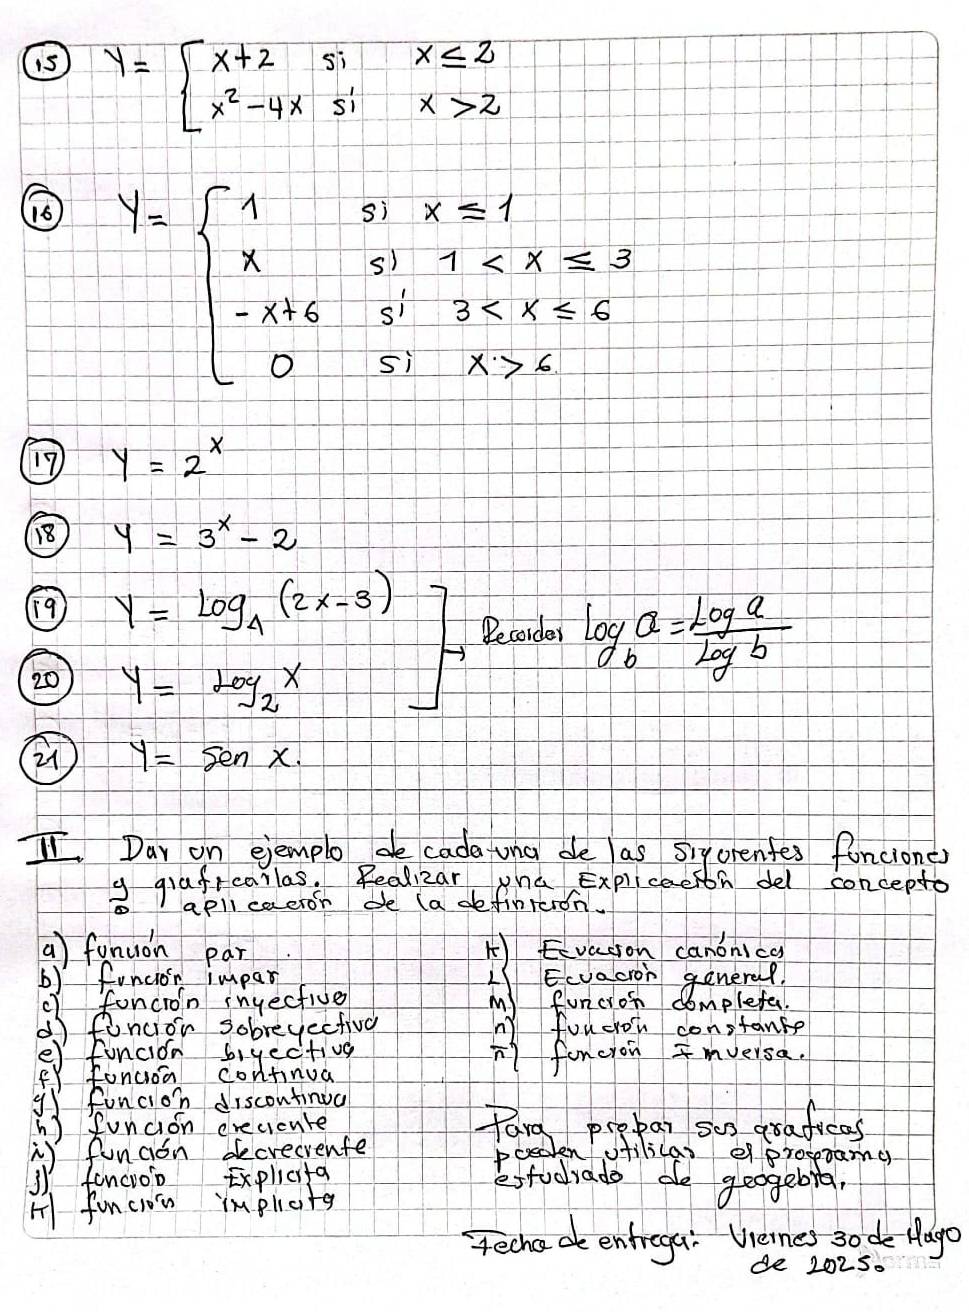 15 Y= { x+2 si x ≤ 2
x² - 4x si x > 2
16 Y= { 1 si x ≤ 1
x si 1 < x ≤ 3
- x+6 si 3 < x ≤ 6
0 si x > 6
17 Y = 2^x
18 Y = 3^x - 2
19 Y = Log₄ (2x-3)
20 Y = Log₂ x
] → Recordar Log_b a = Log a / Log b
21 Y= Sen x.
II. Dar un ejemplo de cada una de las siguientes funciones
y graficarlas. Realizar una Explicación del concepto
o aplicación de la definición.
a) función par.
b) función impar
c) función inyectiva
d) función sobreyectiva
e) función biyectiva
f) función continua
g) función discontinua
h) función creciente
i) función decreciente
j) función Explicita
k) función implicita
k) Ecuacion canónica
L) Ecuación general.
m) función completa.
n) función constante
ñ) función Inversa.
Para probar sus graficas
pueden utilizar el programa
estudiado de geogebra.
Fecha de entrega: Viernes 30 de Mayo
de 2025.
norma